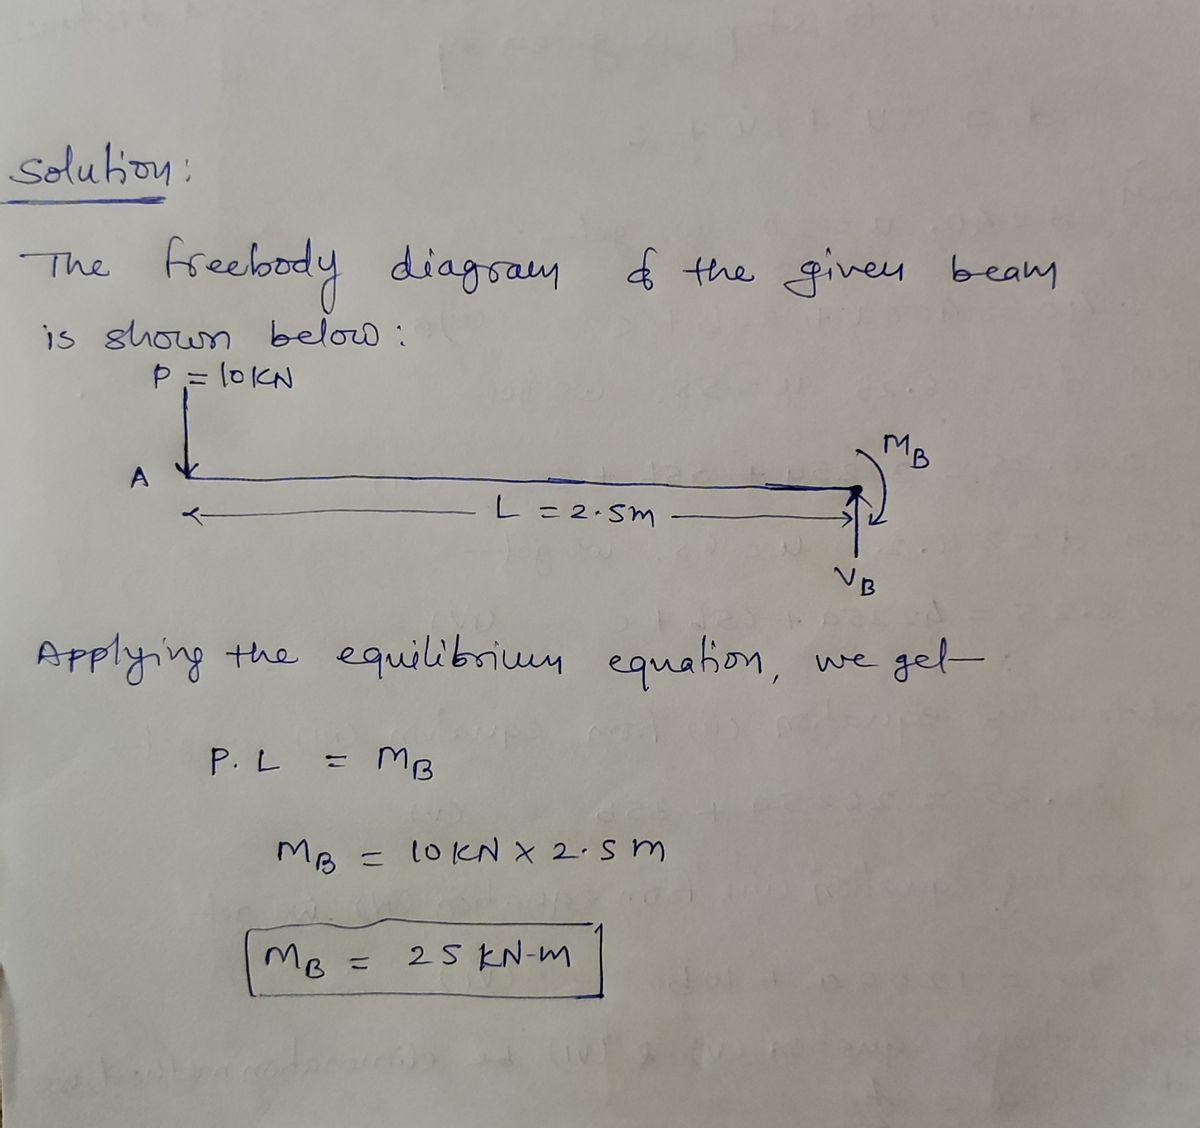 Solution:
The freebody diagram of the given beam
is shown below:
P = 10KN
MB
A
L = 2.5m
VB
Applying the equilibrium equation, we get
P. L = MB
MB = 10 KN x 2.5 m
MB = 25 KN-m